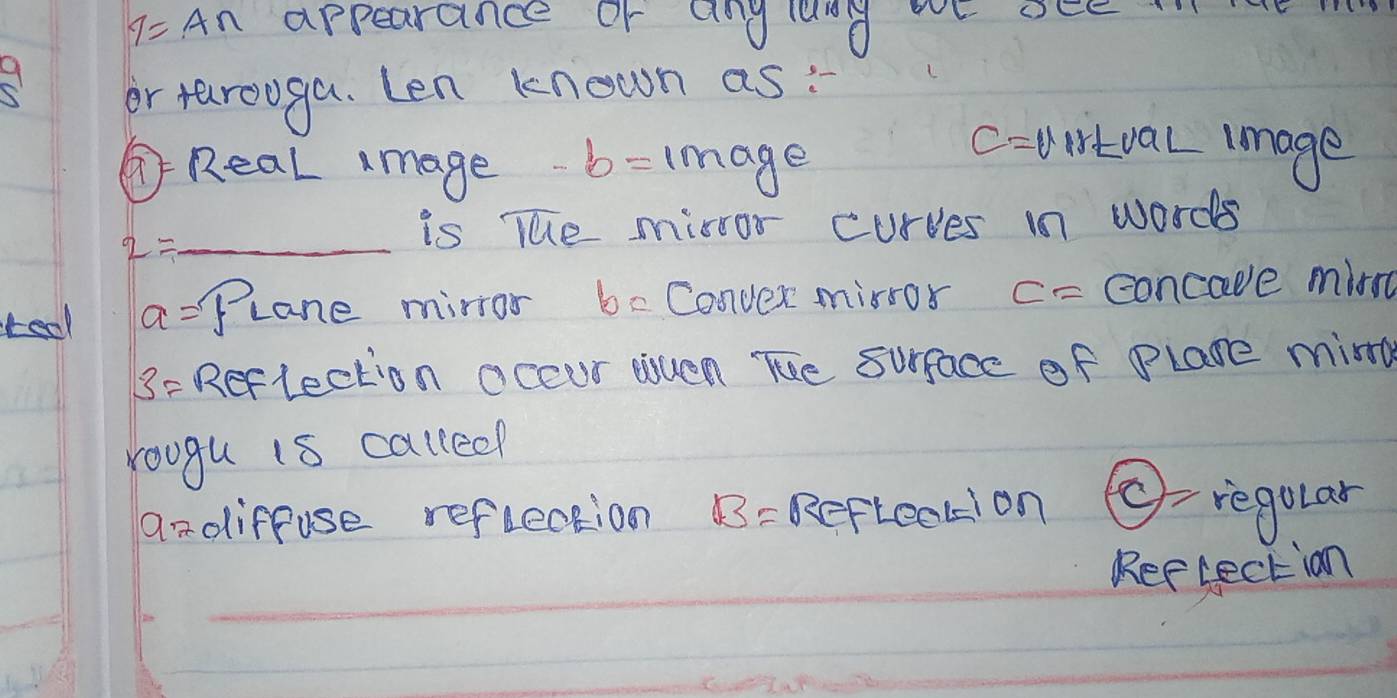 1= An appearance of any thing we see in the mirr
or through. Len known as :-
a= Real image - b= image C= virtual image
2= ________ is The mirror curves in words
a= Plane mirror b= Convex mirror C= Concave mirro
3= Reflection occur when The surface of Plane mirro
rough is called
a= diffuse reflection B= Reflection C= regular
Reflection